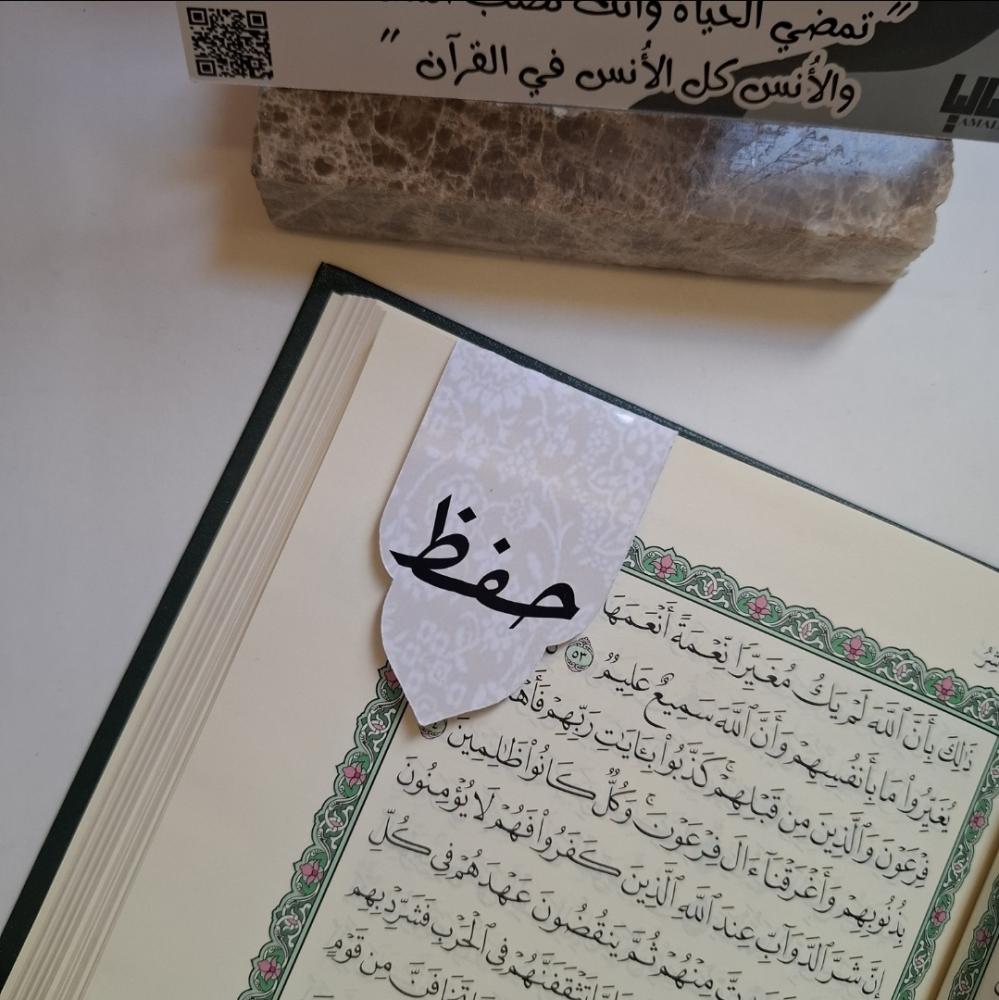 "تمضي الحياة وأنت
والأُنس كل الأُنس في القرآن"
حفظ
ذَٰلِكَ بِأَنَّ ٱللَّهَ لَمْ يَكُ مُغَيِّرًا نِّعْمَةً أَنْعَمَهَا
يُغَيِّرُوا۟ مَا بِأَنفُسِهِمْ وَأَنَّ ٱللَّهَ سَمِيعٌ عَلِيمٌ ٥٣
فِرْعَوْنَ وَٱلَّذِينَ مِن قَبْلِهِمْ ۚ كَذَّبُوا۟ بِـَٔايَٰتِ رَبِّهِمْ
بِذُنُوبِهِمْ وَأَغْرَقْنَآ ءَالَ فِرْعَوْنَ ۚ وَكُلٌّ كَانُوا۟ ظَٰلِمِينَ
إِنَّ شَرَّ ٱلدَّوَآبِّ عِندَ ٱللَّهِ ٱلَّذِينَ كَفَرُوا۟ فَهُمْ لَا يُؤْمِنُونَ
مِنْهُمْ ثُمَّ يَنقُضُونَ عَهْدَهُمْ فِى كُلِّ
تَثْقَفَنَّهُمْ فِى ٱلْحَرْبِ فَشَرِّدْ بِهِم
مِن قَوْمٍ